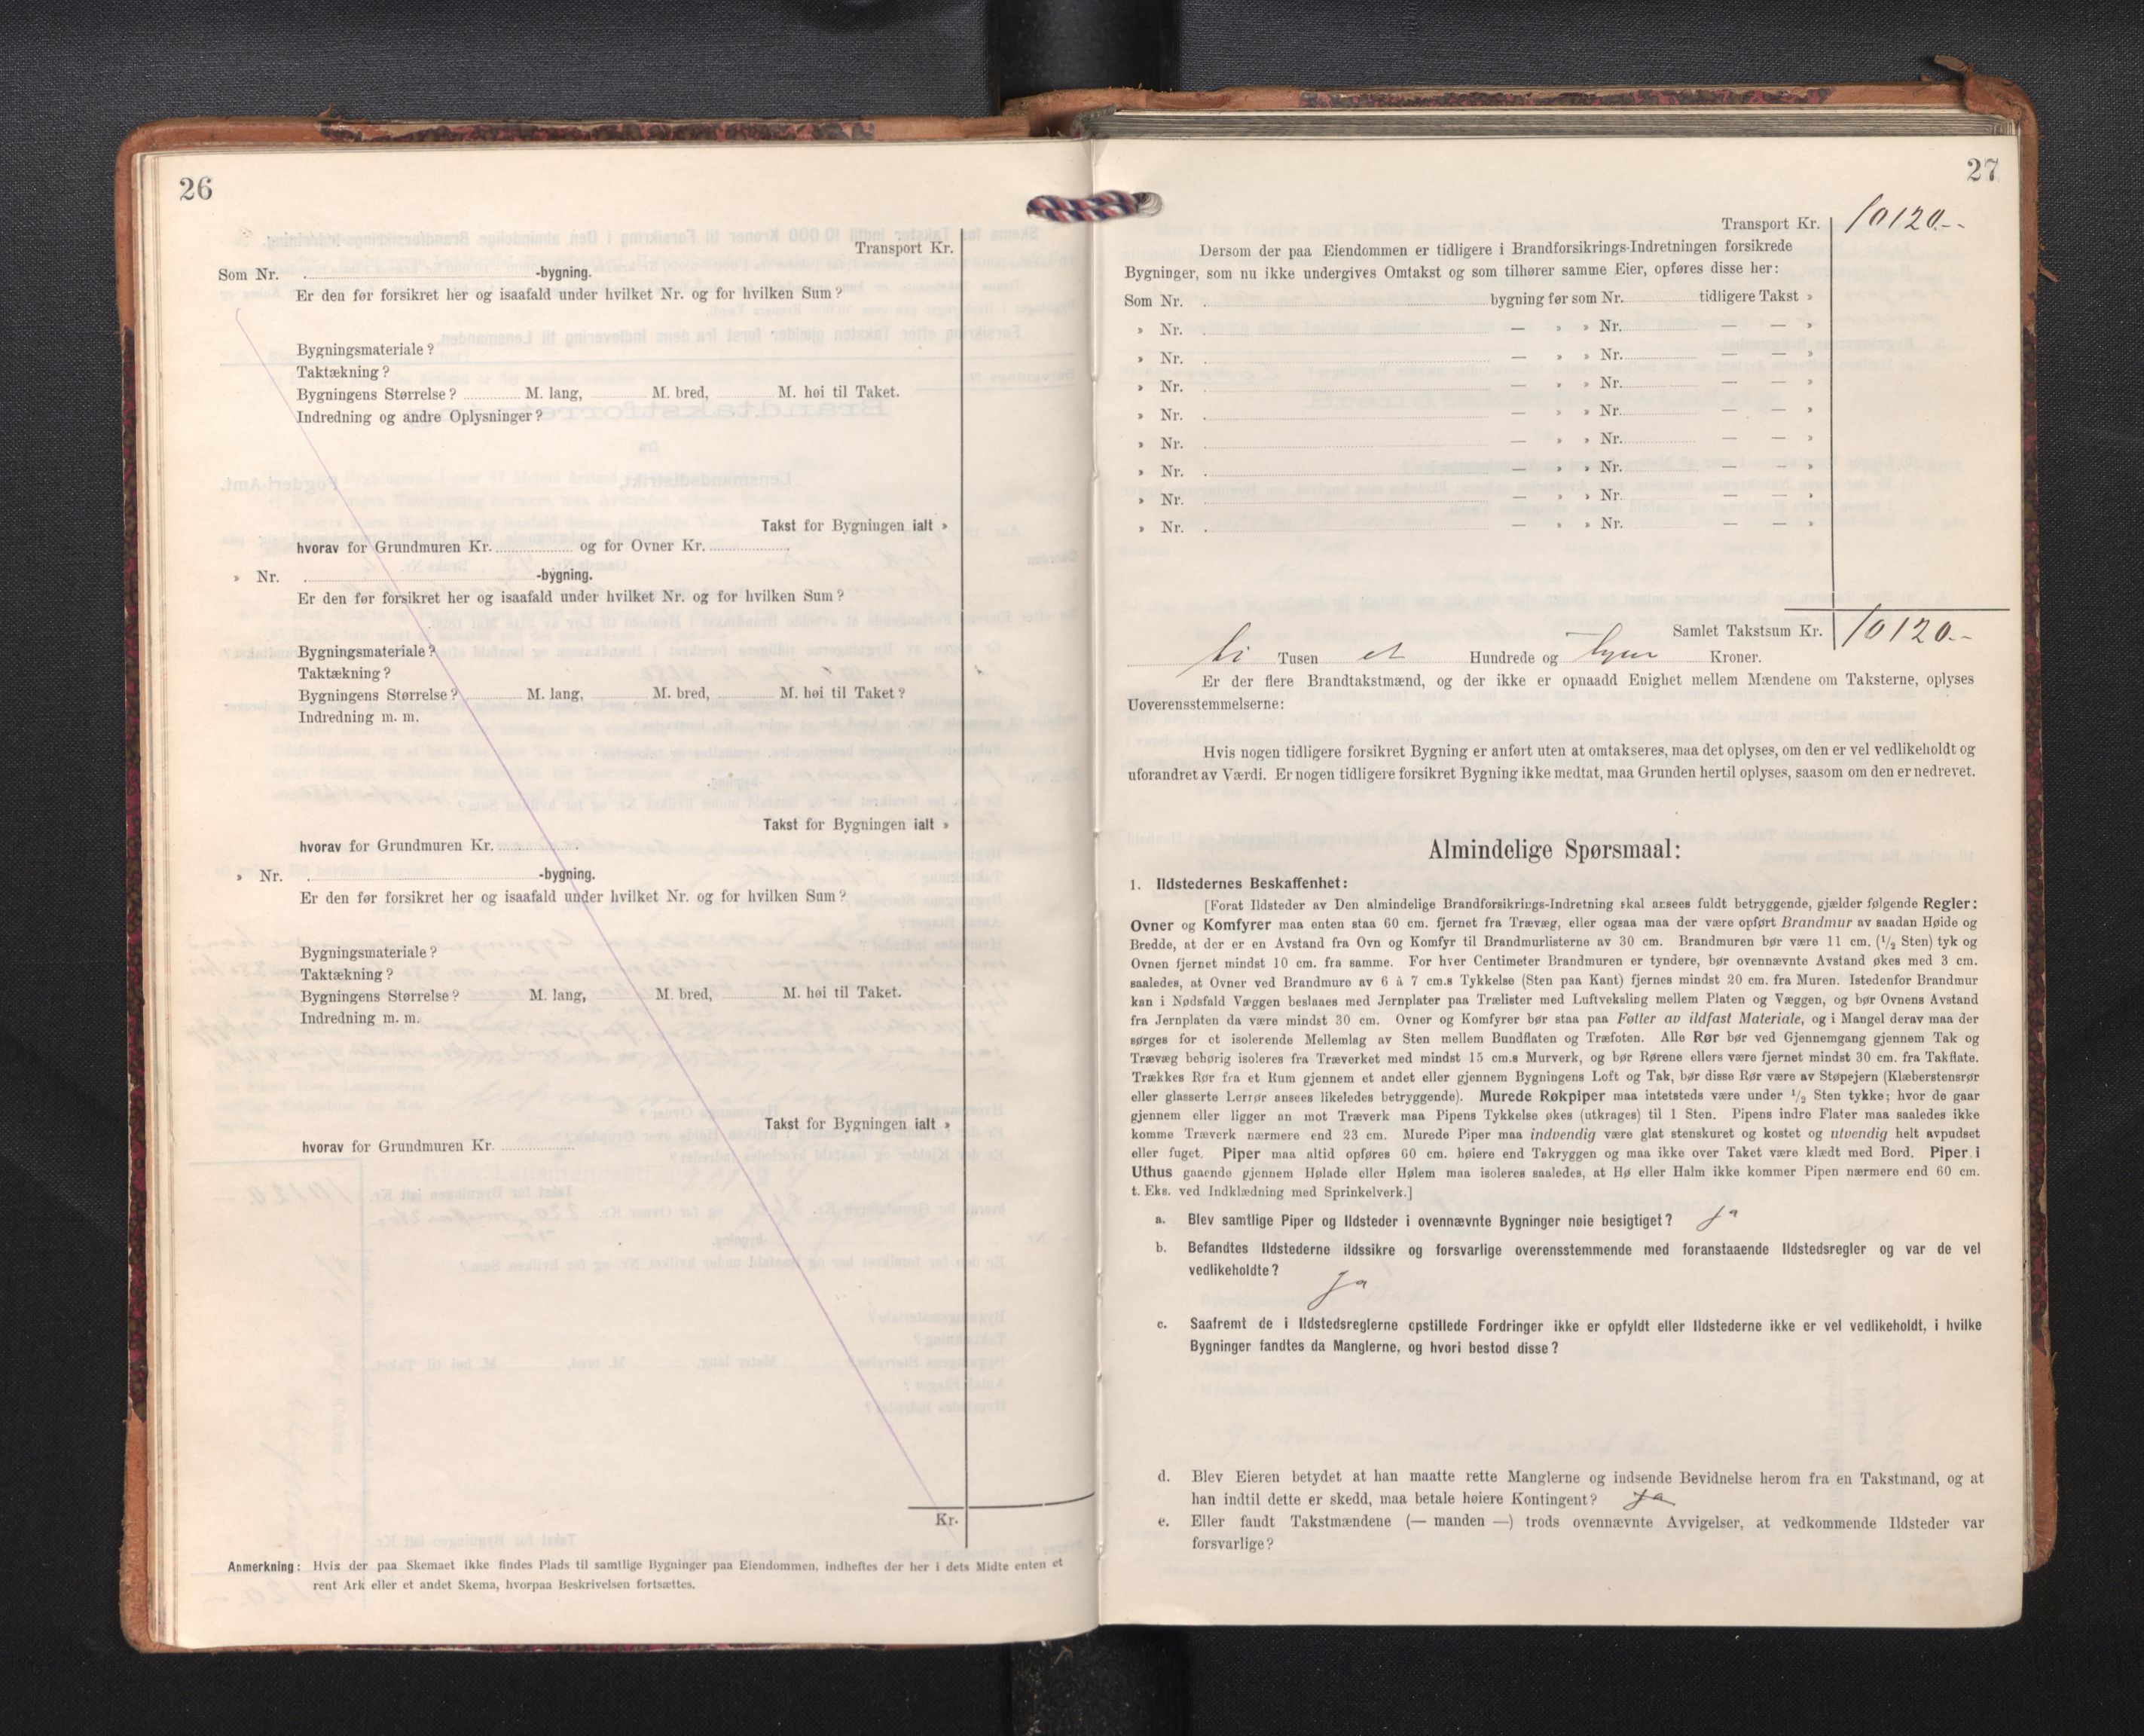 26
Transport Kr.
Som Nr. -bygning.
Er den før forsikret her og isaafald under hvilket Nr. og for hvilken Sum?
Bygningsmateriale?
Taktækning?
Bygningens Størrelse? M. lang, M. bred, M. høi til Taket.
Indredning og andre Oplysninger?
Takst for Bygningen ialt »
hvorav for Grundmuren Kr. og for Ovner Kr.
» Nr. -bygning.
Er den før forsikret her og isaafald under hvilket Nr. og for hvilken Sum?
Bygningsmateriale?
Taktækning?
Bygningens Størrelse? M. lang, M. bred, M. høi til Taket?
Indredning m. m.
Takst for Bygningen ialt »
hvorav for Grundmuren Kr.
» Nr. -bygning.
Er den før forsikret her og isaafald under hvilket Nr. og for hvilken Sum?
Bygningsmateriale?
Taktækning?
Bygningens Størrelse? M. lang, M. bred, M. høi til Taket.
Indredning m. m.
Takst for Bygningen ialt »
hvorav for Grundmuren Kr.
Kr.
Anmerkning: Hvis der paa Skemaet ikke findes Plads til samtlige Bygninger paa Eiendommen, indheftes der her i dets Midte enten et
rent Ark eller et andet Skema, hvorpaa Beskrivelsen fortsættes.
27
Transport Kr. 10120.--
Dersom der paa Eiendommen er tidligere i Brandforsikrings-Indretningen forsikrede
Bygninger, som nu ikke undergives Omtakst og som tilhører samme Eier, opføres disse her:
Som Nr. bygning før som Nr. tidligere Takst »
» Nr. — » » Nr. — — »
» Nr. — » » Nr. — — »
» Nr. — » » Nr. — — »
» Nr. — » » Nr. — — »
» Nr. — » » Nr. — — »
» Nr. — » » Nr. — — »
» Nr. — » » Nr. — — »
» Nr. — » » Nr. — — »
Samlet Takstsum Kr. 10120.--
ti Tusen et Hundrede og tyve Kroner.
Er der flere Brandtakstmænd, og der ikke er opnaadd Enighet mellem Mændene om Taksterne, oplyses
Uoverensstemmelserne:
Hvis nogen tidligere forsikret Bygning er anført uten at omtakseres, maa det oplyses, om den er vel vedlikeholdt og
uforandret av Værdi. Er nogen tidligere forsikret Bygning ikke medtat, maa Grunden hertil oplyses, saasom om den er nedrevet.
Almindelige Spørsmaal:
1. Ildstedernes Beskaffenhet:
[Forat Ildsteder av Den almindelige Brandforsikrings-Indretning skal ansees fuldt betryggende, gjælder følgende Regler:
Ovner og Komfyrer maa enten staa 60 cm. fjernet fra Trævæg, eller ogsaa maa der være opført Brandmur av saadan Høide og
Bredde, at der er en Avstand fra Ovn og Komfyr til Brandmurlisterne av 30 cm. Brandmuren bør være 11 cm. (1/2 Sten) tyk og
Ovnen fjernet mindst 10 cm. fra samme. For hver Centimeter Brandmuren er tyndere, bør ovennævnte Avstand økes med 3 cm.
saaledes, at Ovner ved Brandmure av 6 à 7 cm.s Tykkelse (Sten paa Kant) fjernes mindst 20 cm. fra Muren. Istedenfor Brandmur
kan i Nødsfald Væggen beslaaes med Jernplater paa Trælister med Luftveksling mellem Platen og Væggen, og bør Ovnens Avstand
fra Jernplaten da være mindst 30 cm. Ovner og Komfyrer bør staa paa Føtter av ildfast Materiale, og i Mangel derav maa der
sørges for et isolerende Mellemlag av Sten mellem Bundflaten og Træfoten. Alle Rør bør ved Gjennemgang gjennem Tak og
Trævæg behørig isoleres fra Træverket med mindst 15 cm.s Murverk, og bør Rørene ellers være fjernet mindst 30 cm. fra Takflate.
Trækkes Rør fra et Rum gjennem et andet eller gjennem Bygningens Loft og Tak, bør disse Rør være av Støpejern (Klæberstensrør
eller glasserte Lerrør ansees likeledes betryggende). Murede Røkpiper maa intetsteds være under 1/2 Sten tykke; hvor de gaar
gjennem eller ligger an mot Træverk maa Pipens Tykkelse økes (utkrages) til 1 Sten. Pipens indre Flater maa saaledes ikke
komme Træverk nærmere end 23 cm. Murede Piper maa indvendig være glat stenskuret og kostet og utvendig helt avpudset
eller fuget. Piper maa altid opføres 60 cm. høiere end Takryggen og maa ikke over Taket være klædt med Bord. Piper i
Uthus gaaende gjennem Hølade eller Hølem maa isoleres saaledes, at Hø eller Halm ikke kommer Pipen nærmere end 60 cm.
t. Eks. ved Indklædning med Sprinkelverk.]
a. Blev samtlige Piper og Ildsteder i ovennævnte Bygninger nøie besigtiget? ja
b. Befandtes Ildstederne ildssikre og forsvarlige overensstemmende med foranstaaende Ildstedsregler og var de vel
vedlikeholdte? ja
c. Saafremt de i Ildstedsreglerne opstillede Fordringer ikke er opfyldt eller Ildstederne ikke er vel vedlikeholdt, i hvilke
Bygninger fandtes da Manglerne, og hvori bestod disse?
d. Blev Eieren betydet at han maatte rette Manglerne og indsende Bevidnelse herom fra en Takstmand, og at
han indtil dette er skedd, maa betale høiere Kontingent? ja
e. Eller fandt Takstmændene (— manden —) trods ovennævnte Avvigelser, at vedkommende Ildsteder var
forsvarlige?